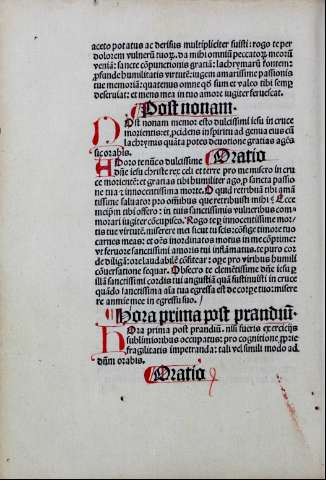 aceto potatus ac derisus multipliciter fuisti: rogo te per
dolorem vulnerū tuorū. da mihi omniū peccatorū meorū
veniā: sancte cōpunctionis gratiā: lachrymarū fontem:
ꝓfunde humilitatis virtutē: iugem amarissime passionis
tue memoriā: quatenus omne qď sum et valeo tibi semꝑ
deseruiat: et mens mea in tuo amore iugiter feruescat.
Post nonam.
Post nonam memor esto dulcissimi iesu in cruce
morientis: et ꝓcidens in spiritu ad genua eius cū
lachrymis quāta potes deuotione gratias agēs
sic orabis. Oratio
Adoro te nūc o dulcissime
dn̄e iesu christe rex celi et terre pro me misero in cru
ce moriētē: et gratias tibi humiliter ago, ꝓ sancta passio
ne tua et innocentissima morte. Quid retribuā tibi amā
tissime saluator pro omnibus que retribuisti mihi? Ecce
meipm̄ tibi offero: in tuis sanctissimis vulneribus com
morari iugiter cōcupisco. Rogo te ꝑ innocentissime mor
tis tue virtutē. miserere mei sicut tu scis: cōfige timore tuo
carnes meas: et oēs inordinatos motus in me cōprime:
vt feruore sanctissimi amoris tui inflāmatus. te puro cor
de diligā: ore laudabili cōfitear: oꝑe pro viribus humili
cōuersatione sequar. Obsecro te clemētissime dn̄e iesu ꝑ
illā sanctissimi cordis tui angustiā quā sustinuisti in cruce
quādo sanctissima aīa tua egressa est de corpe tuo: misere
re anime mee in egressu suo.
Hora prima post prandiū.
Hora prima post prandiū. nisi fueris exercicijs
sublimioribus occupatus: pro cognitione ꝓprie
fragilitatis impetranda: tali vel simili modo ad
dn̄um orabis.
Oratio